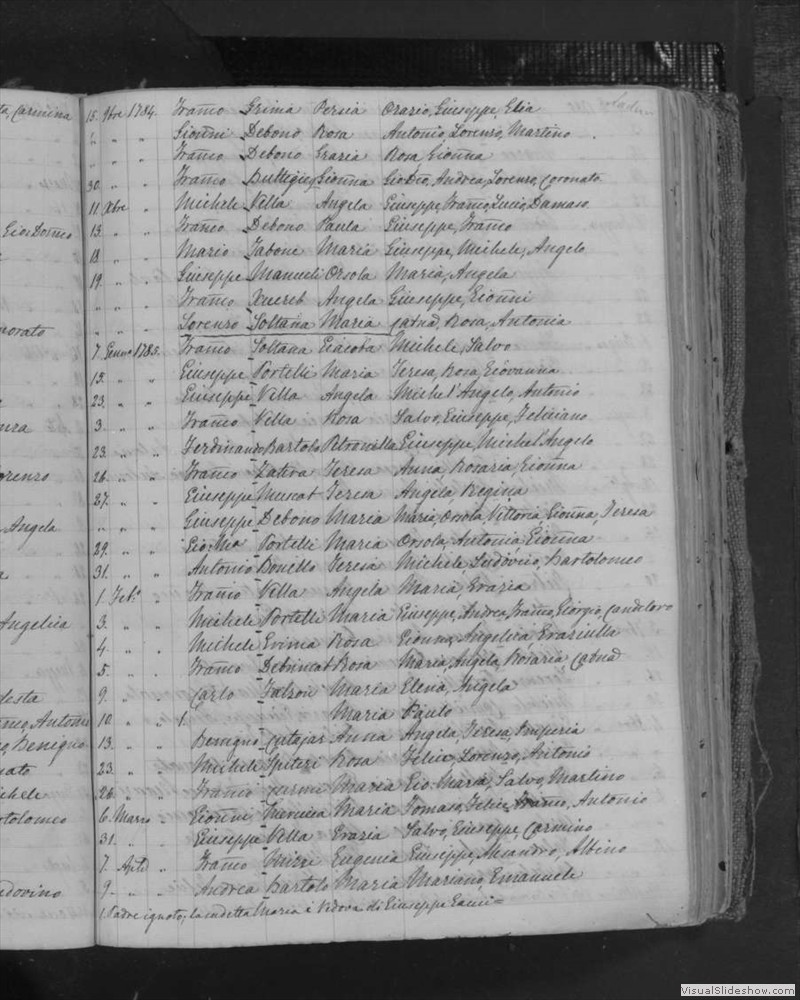 ta, Carmina
15. 9bre 1784. Franco Grima Persia Orazio, Giuseppe, Elia
" " " Gionni Debono Rosa Antonio, Lorenzo, Martino
" " " Franco Debono Grazia Rosa, Gionna
30. " " Franco Buttigieg Gionna Andrea, Lorenzo, Coronato
11. Xbre " Michele Vella Angela Giuseppe, Franco, Lucio, Damaso
13. " " Franco Debono Paula Giuseppe, Franco
18 " " Mario Tabone Maria Giuseppe, Michele, Angelo
19. " " Giuseppe Manueli Orsola Maria, Angela
" " " Franco Xuereb Angela Giuseppe, Gionni
norato
" " " Lorenzo Soltana Maria Catna, Rosa, Antonia
7. Genn. 1785. Franco Soltana Giacoba Michele, Salvo
13. " " Giuseppe Portelli Maria Teresa, Rosa, Giovanna
23. " " Giuseppe Vella Angela Michel'Angelo, Antonio
3. " " Franco Vella Rosa Salvo, Giuseppe, Feliciano
23. " " Ferdinando Bartolo Petronilla Giuseppe, Michel'Angelo
orenzo
26. " " Franco Teresa Anna, Rosaria, Gionna
27. " " Giuseppe Muscat Teresa Angela Regina
Angela
" " " Giuseppe Debono Maria Maria, Orsola, Vittoria, Gionna, Teresa
29. " " Gio: Ma Portelli Maria Orsola, Antonia, Gionna
31. " " Antonio Bonello Teresa Michele, Ludovico, Bartolomeo
1. Feb. " Franco Vella Angela Maria, Grazia
Angelica
3. " " Michele Portelli Maria Giuseppe, Andrea, Franco, Giorgio, Candeloro
4. " " Michele Grima Rosa Gionna, Angelica, Graziulla
5. " " Franco Debrincat Rosa Maria, Angela, Rosaria, Catna
9. " " Carlo Falzon Maria Elena, Angela
Antonio
10. " " 1. Maria Paulo
Benigno
13. " " Benigno Cutajar Anna Angela, Teresa, Imperia
23. " " Michele Spiteri Rosa Felice, Lorenzo, Antonio
26. " " Franco Maria Gio: Maria, Salvo, Martino
tolomeo
6. Marzo Gionni Maria Tomaso, Felice, Franco, Antonio
31. " " Giuseppe Vella Grazia Salvo, Giuseppe, Carmino
7. Aple " Franco Mizzi Eugenia Giuseppe, Alesandro, Albino
9. " " Andrea Bartolo Maria Mariano, Emanuele
1. Padre ignoto, la sudetta Maria è Vedova di Giuseppe
VisualSlideshow.com